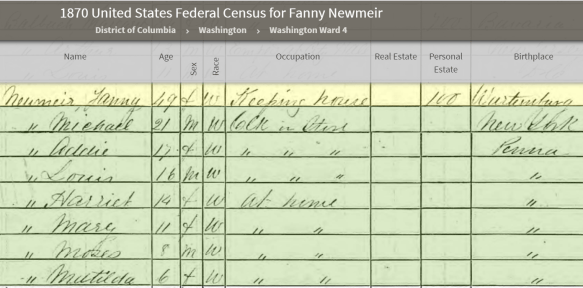 1870 United States Federal Census for Fanny Newmeir
District of Columbia › Washington › Washington Ward 4
Name Age Sex Race Occupation Real Estate Personal Estate Birthplace
Newmeir, Fanny 49 f W Keeping house 100 Wurtemburg
" Michael 21 m W Clk in Store New York
" Addie 17 f W " " " Penna
" Louis 16 m W " " " "
" Harriet 14 f W at home "
" Mary 11 f W " " "
" Moses 8 m W " " "
" Matilda 6 f W " " "